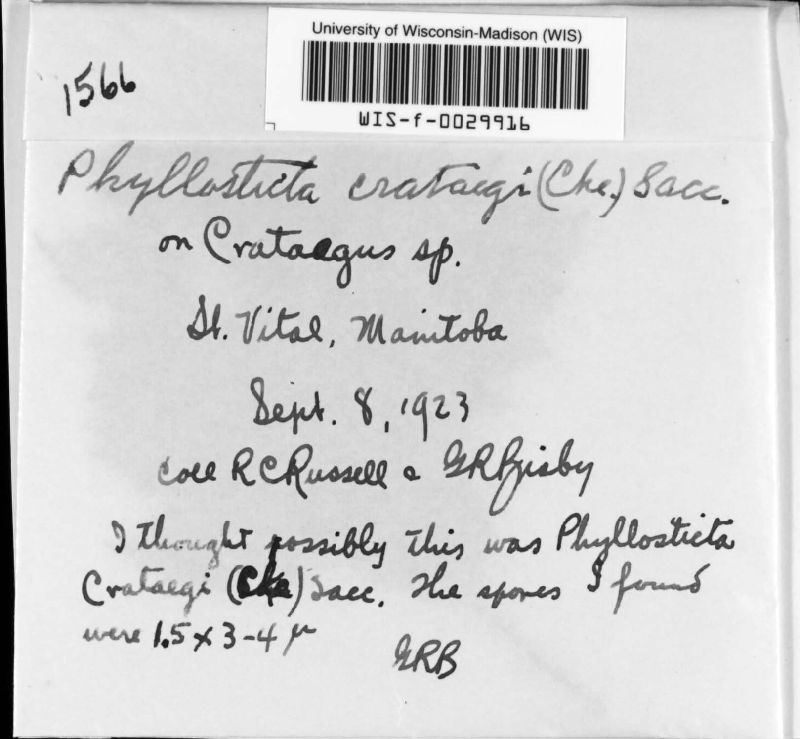 University of Wisconsin-Madison (WIS)
WIS-f-0029916
1566
Phyllosticta crataegi (Cke.) Sacc.
on Crataegus sp.
St. Vital, Manitoba
Sept. 8, 1923
coll R C Russell & G R Bisby
I thought possibly this was Phyllosticta
Crataegi (Cke) Sacc. The spores I found
were 1.5 x 3-4 μ
GRB